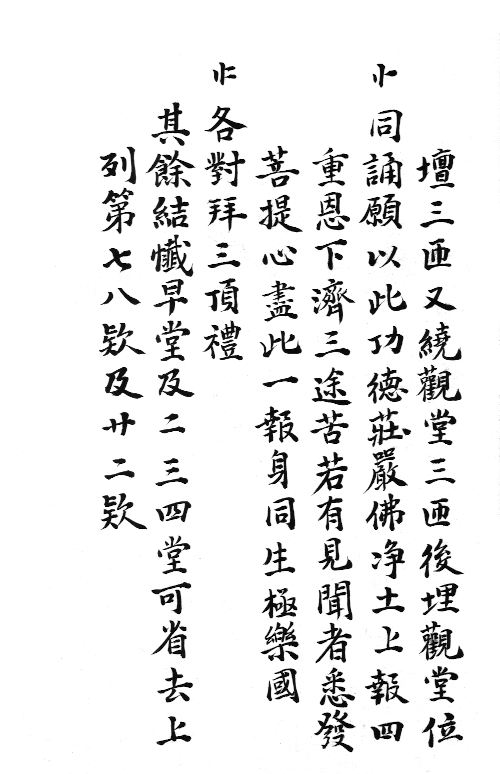 壇三匝又繞觀堂三匝後埋觀堂位
同誦願以此功德莊嚴佛净土上報四
重恩下濟三途苦若有見聞者悉發
菩提心盡此一報身同生極樂國
各對拜三頂禮
其餘結懺早堂及二三四堂可省去上
列第七八欵及廿二欵